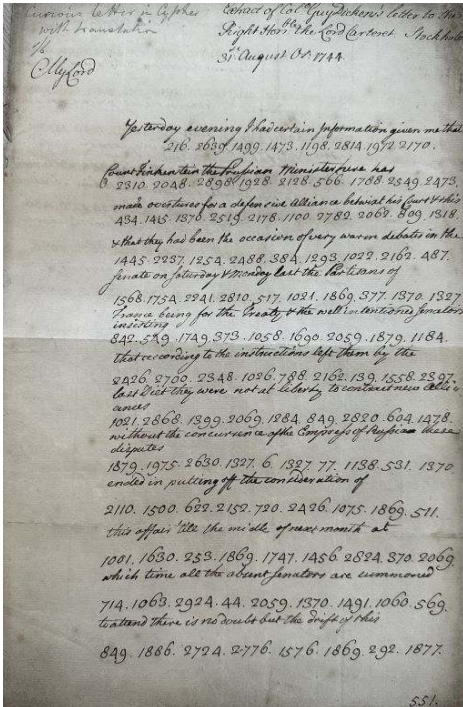 Curious Letter in Cypher
with translation
Extract of Col. Guy Dickens's letter to the
Right Hon.ble the Lord Carteret Stockholm
31st August OS. 1744.
My Lord
Yesterday evening I had certain Information given me that
216. 2639. 1499. 1473. 1198. 2814. 1972. 2170.
Count Finkenstein the Prussian Minister here has
2310. 2048. 2898. 1928. 2128. 566. 1768. 2549. 2473.
made overtures for a defensive Alliance betwixt his Court & this
434. 1415. 1370. 2519. 2178. 1100. 2782. 2062. 809. 1318.
& that they had been the occasion of very warm debates in the
1445. 2237. 1254. 2488. 384. 1293. 1022. 2162. 487.
Senate on Saturday & Monday last the Partisans of
1568. 1754. 2241. 2810. 517. 1021. 1869. 377. 1370. 1327
France being for the Treaty & the well intentioned Senators
insisting
842. 549. 1749. 373. 1058. 1690. 2059. 1879. 1184.
that according to the instructions left them by the
2426. 2700. 2348. 1026. 788. 2162. 139. 1558. 2397.
last Diet they were not at liberty to contract new Alli
ances
1021. 2868. 1399. 2069. 1284. 849. 2820. 604. 1478.
without the concurrence of the Empress of Russia these
disputes
1879. 1975. 2630. 1327. 6. 1327. 77. 1138. 531. 1370
ended in putting off the consideration of
2110. 1500. 622. 2152. 720. 2426. 1075. 1869. 511.
this affair 'till the middle of next month at
1001. 1630. 253. 1869. 1747. 1456. 2824. 370. 2069
which time all the absent Senators are summoned
714. 1063. 2924. 44. 2059. 1370. 1491. 1060. 569.
to attend there is no doubt but the drift of this
849. 1886. 2724. 2776. 1576. 1869. 292. 1877.
551.